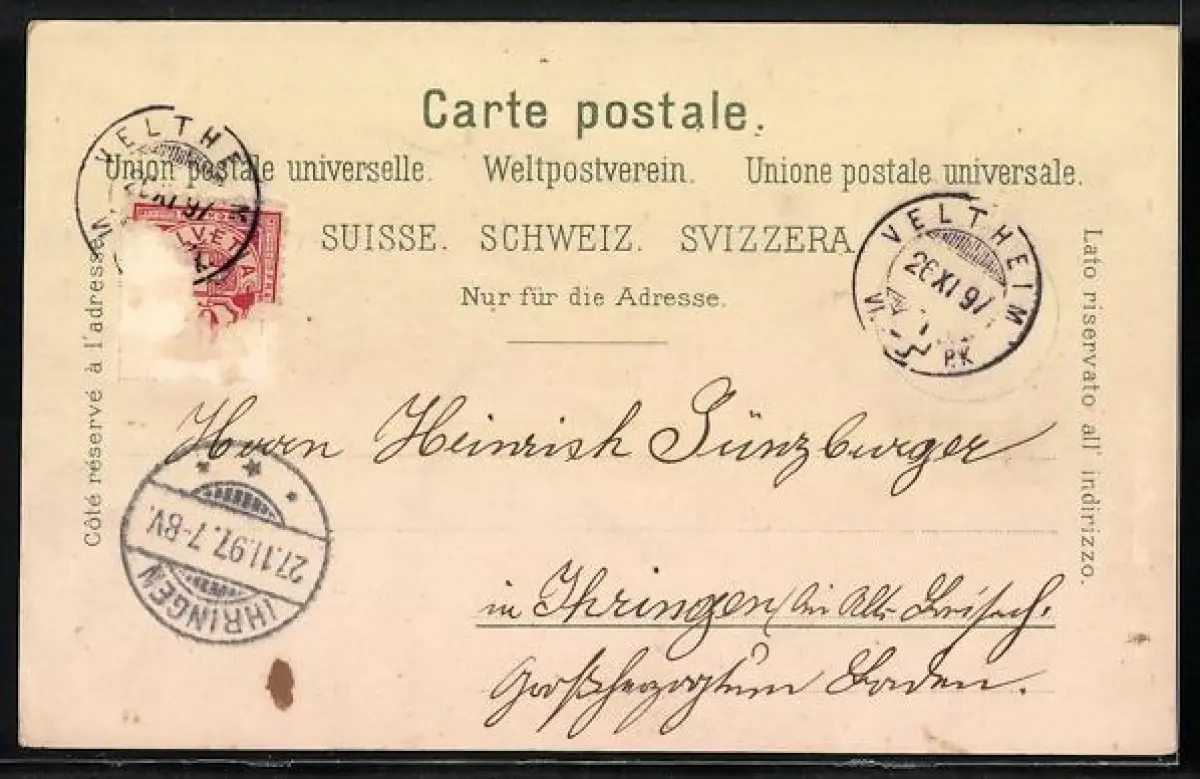 Carte postale.
Union postale universelle. Weltpostverein. Unione postale universale.
SUISSE. SCHWEIZ. SVIZZERA.
Nur für die Adresse.
Côté réservé à l'adresse.
Lato riservato all' indirizzo.
VELTHEIM
26 XI 97
VI
VELTHEIM
26 XI 97
VI
P.K
Herrn Heinrich Günzburger
in Ihringen bei Alt-Breisach.
Großherzogtum Baden.
IHRINGEN
27.11.97. 7-8V.